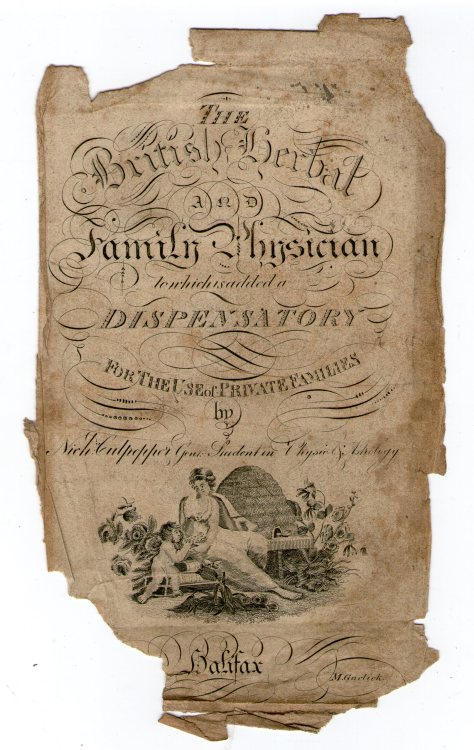 THE
British Herbal
AND
Family Physician
to which is added a
DISPENSATORY
FOR THE USE of PRIVATE FAMILIES
by
Nichs. Culpepper Gent. Student in Physic & Astrology
Halifax
M. Garlick